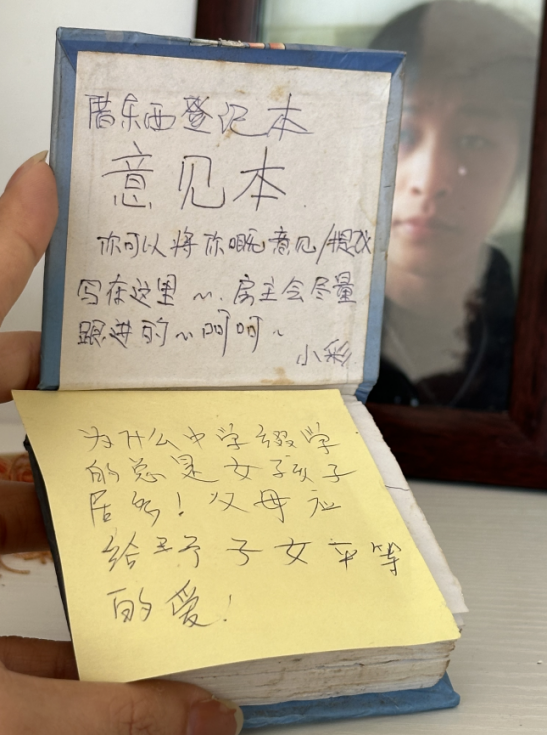 借东西登记本
意见本
你可以将你嘅意见/提议
写在这里~.房主会尽量
跟进的~呵呵~
小彩
为什么中学缀学
的总是女孩子
居多!父母应
给予子女平等
的爱!